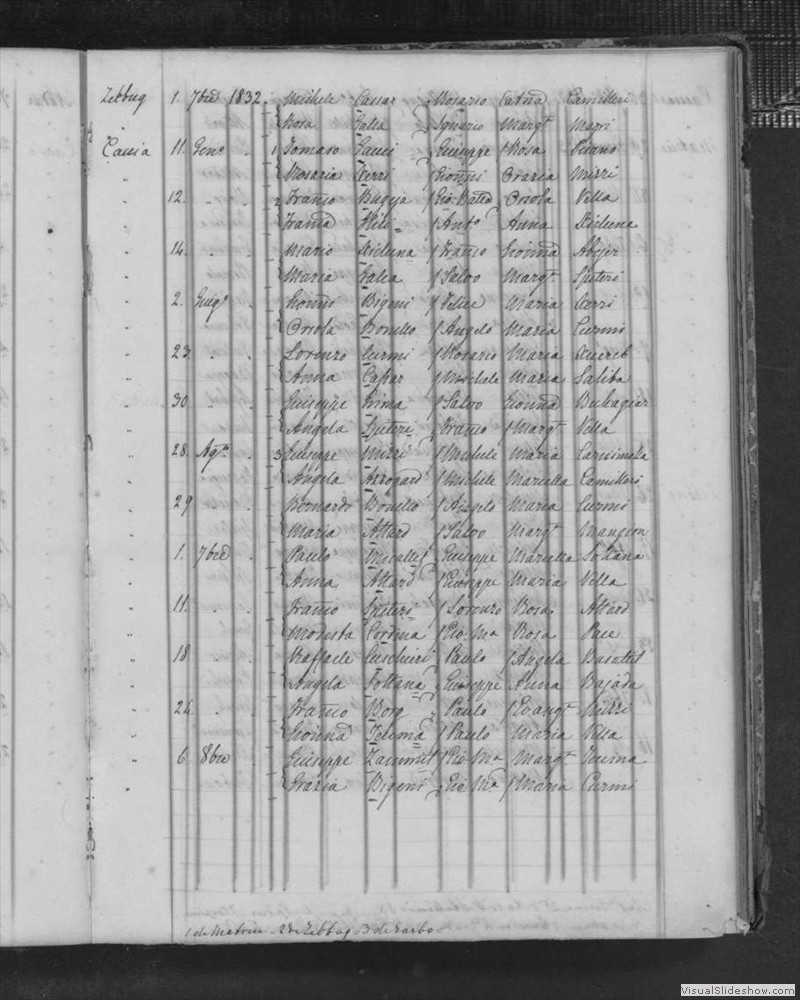 Zebbug 1. 7bre 1832. Michele Cassar Rosario Catna Camilleri
Rosa Galea Ignazio Margt Magri
Cassia 11. Geno 1 Tomaso Giuseppe Rosa
Rosaria Gionni Grazia Mizzi
12. 2 Franco Bugeja Gio Batta Orsola Vella
Franca Anto Anna Xicluna
14. Mario Xicluna Franco Gionna Abejer
Maria Galea Salvo Margt Spiteri
2. Giugo Gionni Bigeni Felice Maria
Orsola Bonello Angelo Maria Curmi
23. Lorenzo Curmi Rosario Maria Xuereb
Anna Cassar Michele Maria Saliba
30 Giuseppe Grima Salvo Gionna Buhagiar
Angela Spiteri Franco Margt Vella
28. Agto 3 Giuseppe Mizzi Michele Maria
Angela Azzopard Michele Mariella Camilleri
29 Bernardo Bonello Angelo Maria Curmi
Maria Attard Salvo Margt Mangion
1. 7bre Paulo Micallef Giuseppe Mariella Soltana
Anna Attard Giuseppe Maria Vella
11. Franco Spiteri Lorenzo Rosa Attard
Modesta Cordina Gio. Ma Rosa Pace
18 Raffaele Cuschieri Paulo Angela
Angela Soltana Giuseppe Anna Bajada
24 Franco Borg Paulo Evangta Mizzi
Gionna Paulo Maria Vella
6 8bre Giuseppe Zammit Gio. Ma Margt
Grazia Bigeni Gio Ma Maria Curmi
1 de Matrice. 2 de Zebbug. 3 de Garbo
VisualSlideshow.com